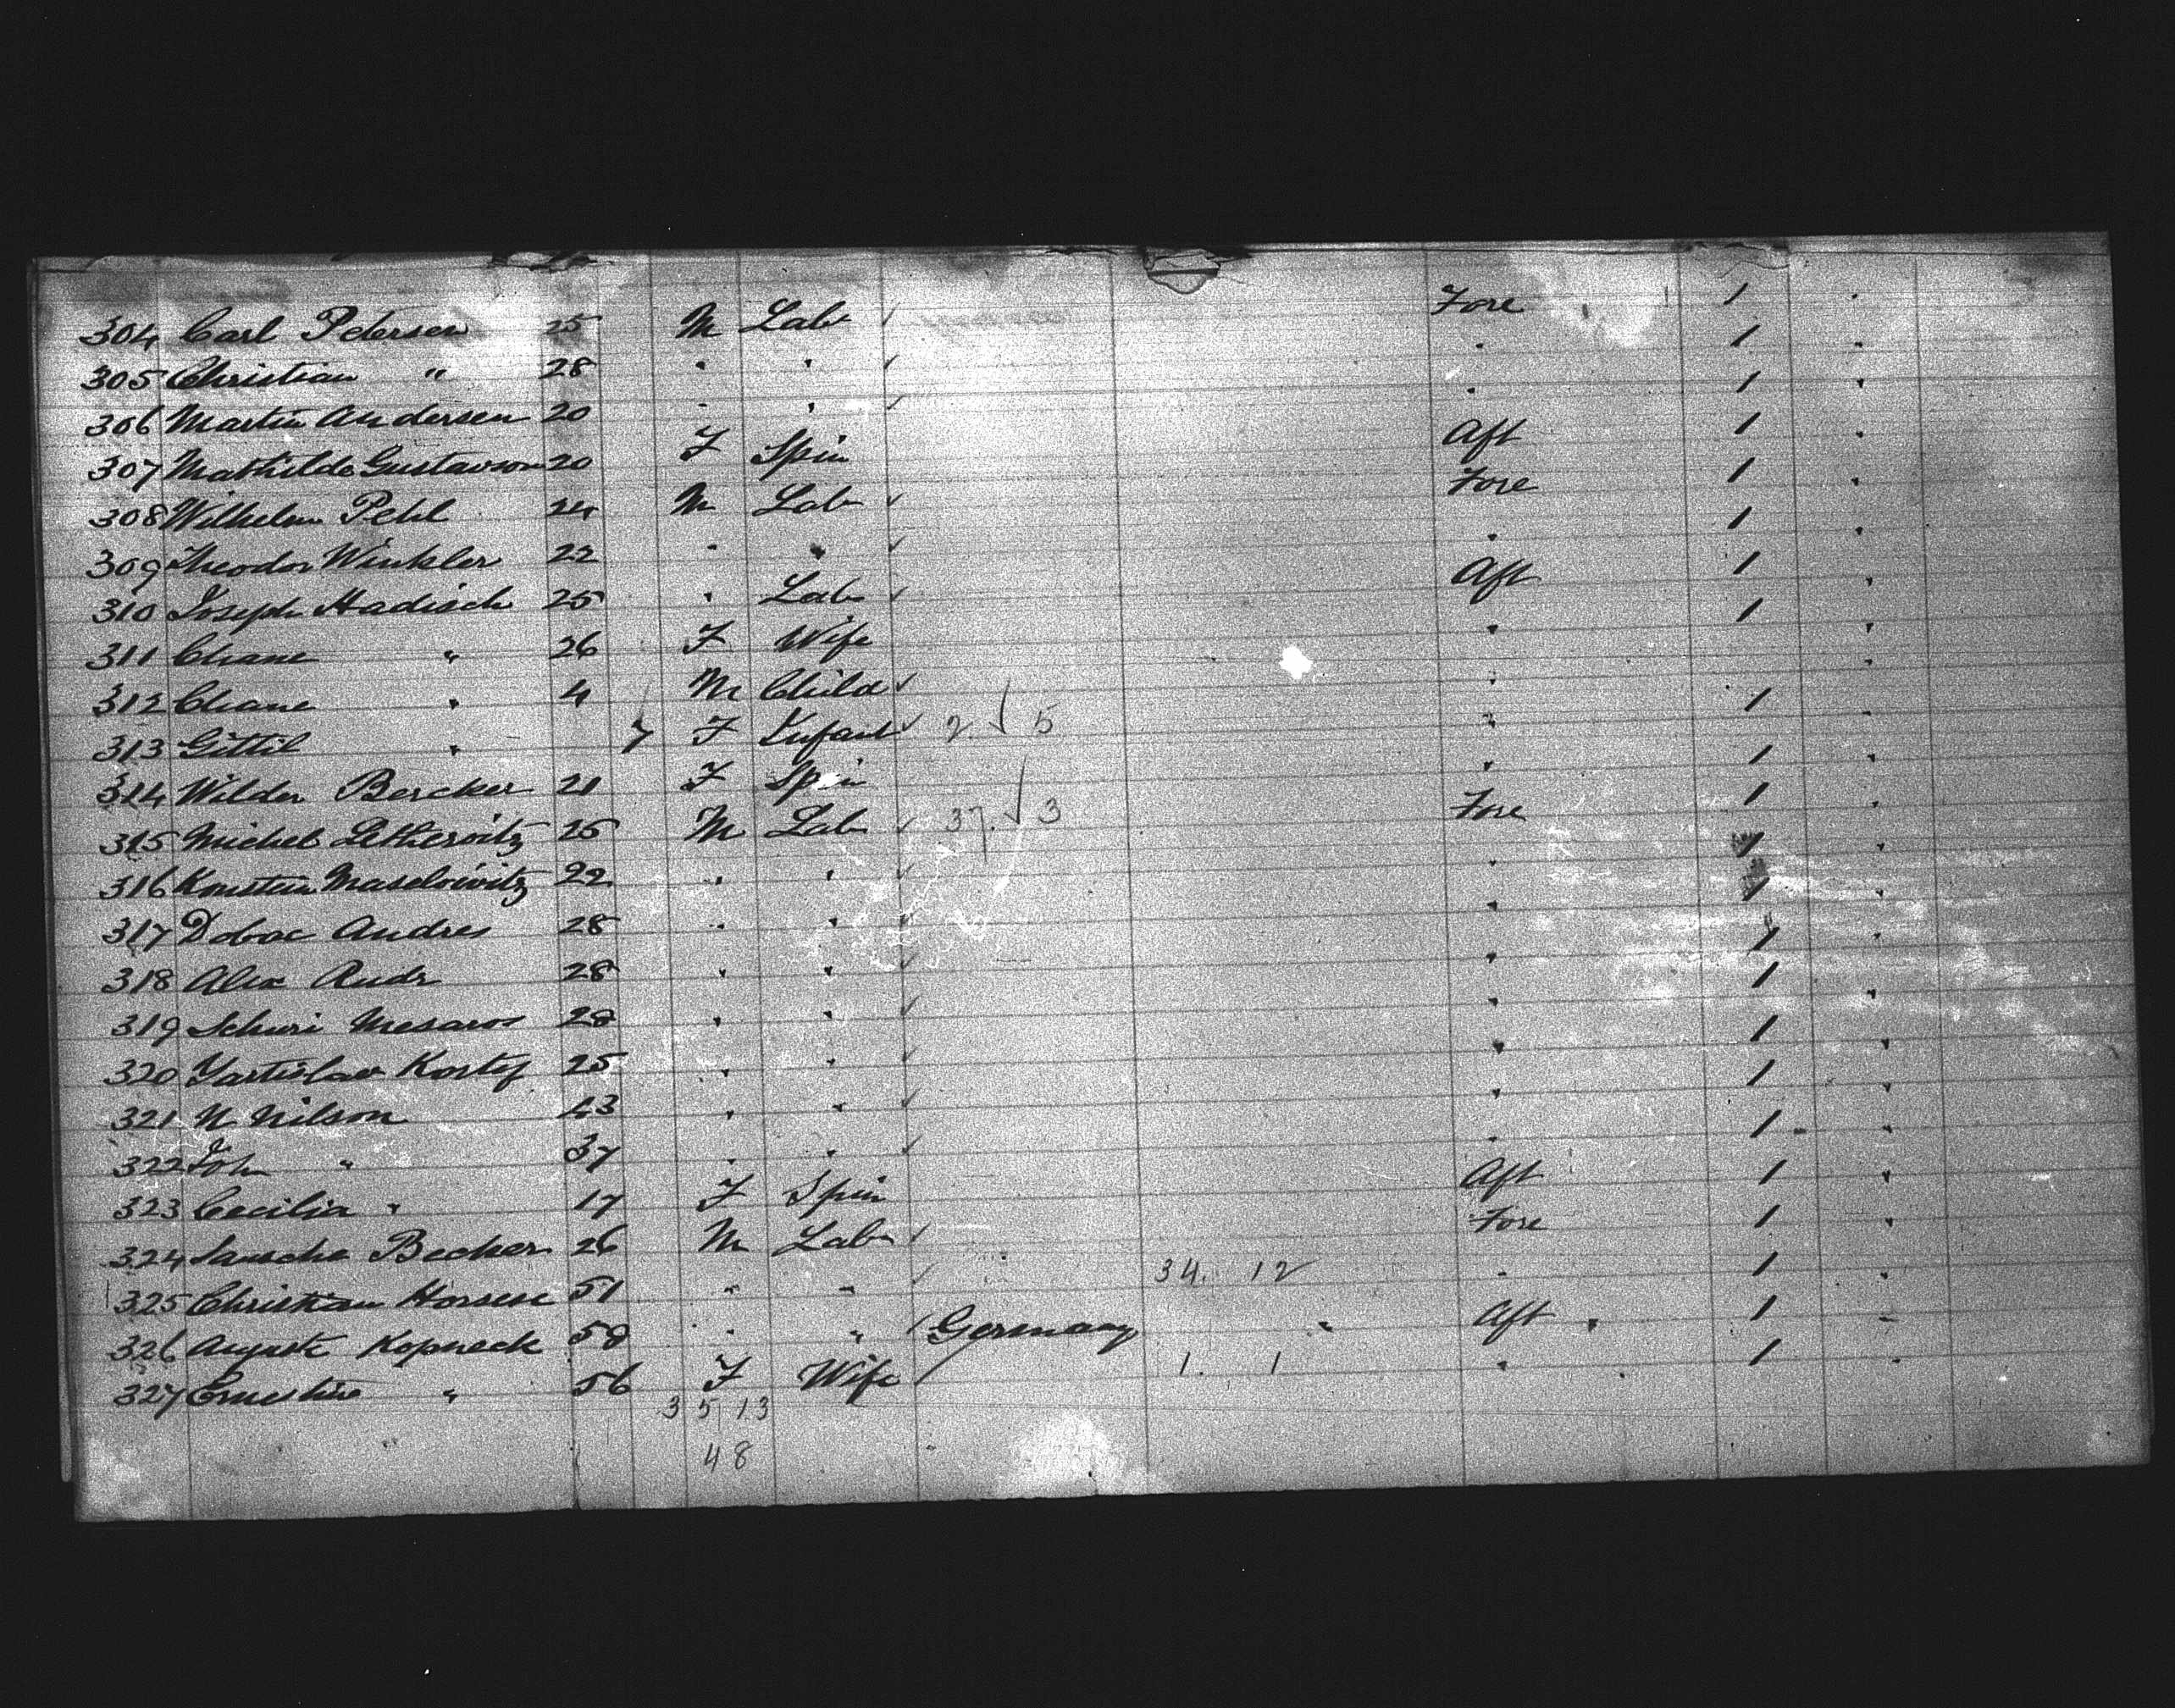 304 Carl Petersen 25 M Lab ✓ Fore 1 "
305 Christian " 28 " " ✓ " 1 "
306 Martin Andersen 20 " " ✓ " 1 "
307 Mathilda Gustavson 20 F Spin Aft 1 "
308 Wilhelm Pehl 24 M Lab ✓ Fore 1 "
309 Theodor Winkler 22 " " ✓ " 1 "
310 Joseph Hadisch 25 " Lab ✓ Aft 1 "
311 Chane " 26 F Wife " 1 "
312 Chane " 4 M Child ✓ " "
313 Gittil " 7 F Infant ✓ 2. ✓ 5 " 1 "
314 Wilder Bercker 21 F Spin " 1 "
315 Michel 25 M Lab ✓ 37. ✓ 3 Fore 1 "
316 22 " " ✓ " 1 "
317 Dobac Andres 28 " " ✓ " 1 "
318 Alex Andr 28 " " ✓ " 1 "
319 Schuri Mesaros 28 " " ✓ " 1 "
320 Yartislav 25 " " ✓ " 1 "
321 N Nilson 43 " " ✓ " 1 "
322 Joh " 37 " " ✓ " 1 "
323 Cecilia " 17 F Spin Aft 1 "
324 Becker 26 M Lab ✓ Fore 1 "
325 Christian 51 " " ✓ 34. 12 " 1 "
326 August Kopneck 58 " " Germany " Aft " 1 "
327 Ernestine " 56 F Wife 1. 1 " 1 "
35 13
48